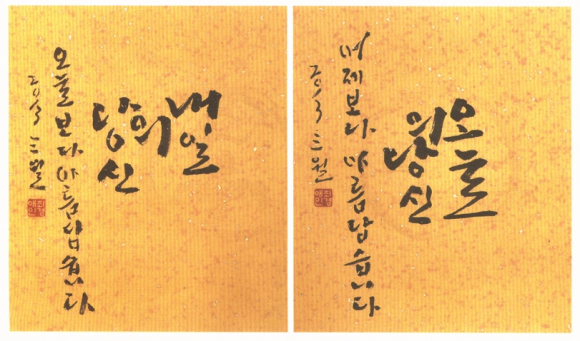 오늘
의 당신
어제보다 아름답습니다
내일
의
당신
오늘보다 아름답습니다